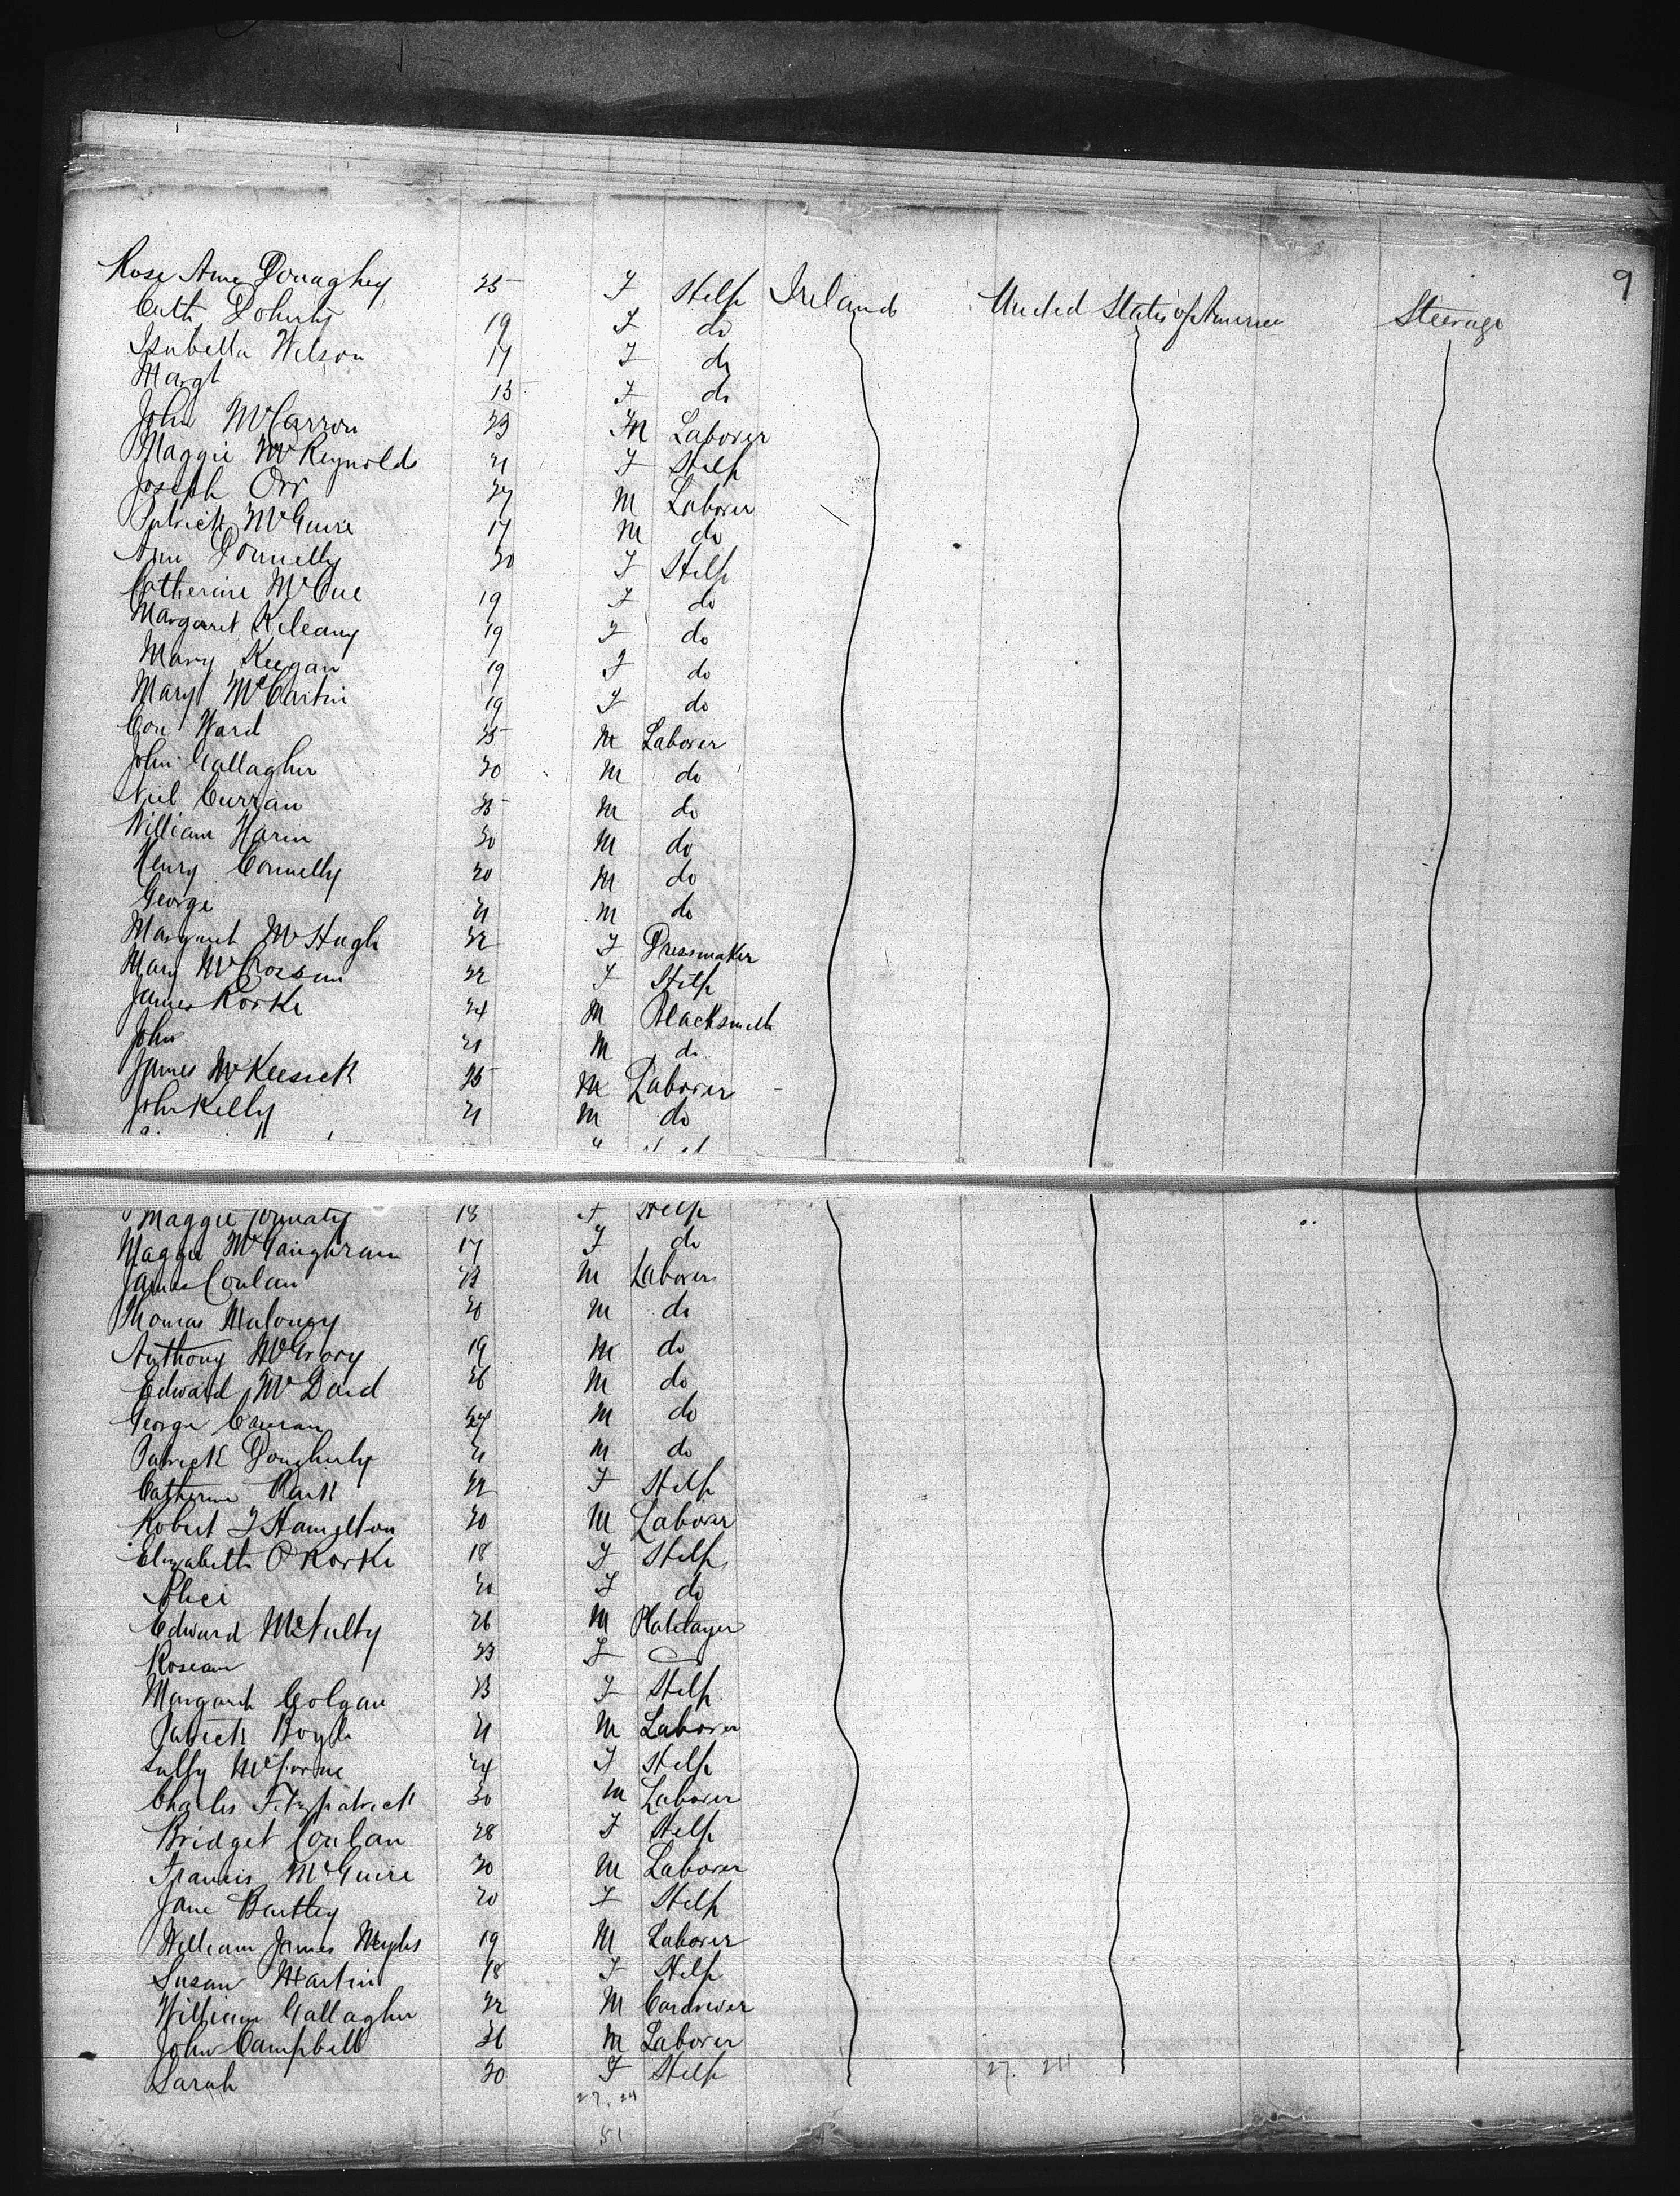 9
Rose Ann Donaghey 25 F Help Ireland United States of America Steerage
Cath Doherty 19 F do
Isabella Wilson 17 F do
Margt 15 F do
John McCarron 23 M Laborer
Maggie McReynolds 21 F Help
Joseph Orr 27 M Laborer
Patrick McGuire 17 M do
Ann Donnelly 30 F Help
Catherine McCue 19 F do
Margaret Kileany 19 F do
Mary Keegan 19 F do
Mary McCartin 19 F do
Con Ward 25 M Laborer
John Gallagher 20 M do
Neil Curran 25 M do
William Harm 30 M do
Henry Connelly 20 M do
George 21 M do
Margaret McHugh 22 F Dressmaker
Mary McCrossan 22 F Help
James Rorke 24 M Blacksmith
John 21 M do
James McKessick 25 M Laborer
John Kelly 21 M do
Maggie 18 F Help
Maggie McGaughran 17 F do
James Conlan 23 M Laborer
Thomas Maloney 20 M do
Anthony McGrory 19 M do
Edward McDaid 26 M do
George 24 M do
Patrick Dougherty 21 M do
Catherine 22 F Help
Robert J Hamilton 20 M Laborer
Elizabeth O'Rorke 18 F Help
Alice 20 F do
Edward McNulty 26 M Platelayer
Roseann 23 F
Margaret Colgan 23 F Help
Patrick Boyle 21 M Laborer
24 F Help
Charles Fitzpatrick 30 M Laborer
Bridget Conlan 28 F Help
Francis McGuire 20 M Laborer
Jane Bartley 20 F Help
William James 19 M Laborer
Susan Martin 18 F Help
William Gallagher 22 M
John Campbell 26 M Laborer
Sarah 20 F Help
27. 24 27. 24
51